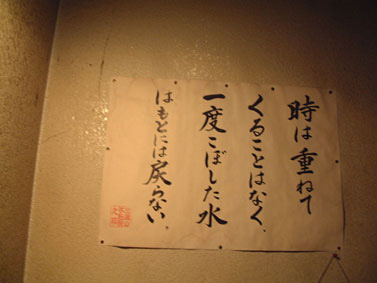 時は重ねて
くることはなく、
一度こぼした水
はもとには戻らない。